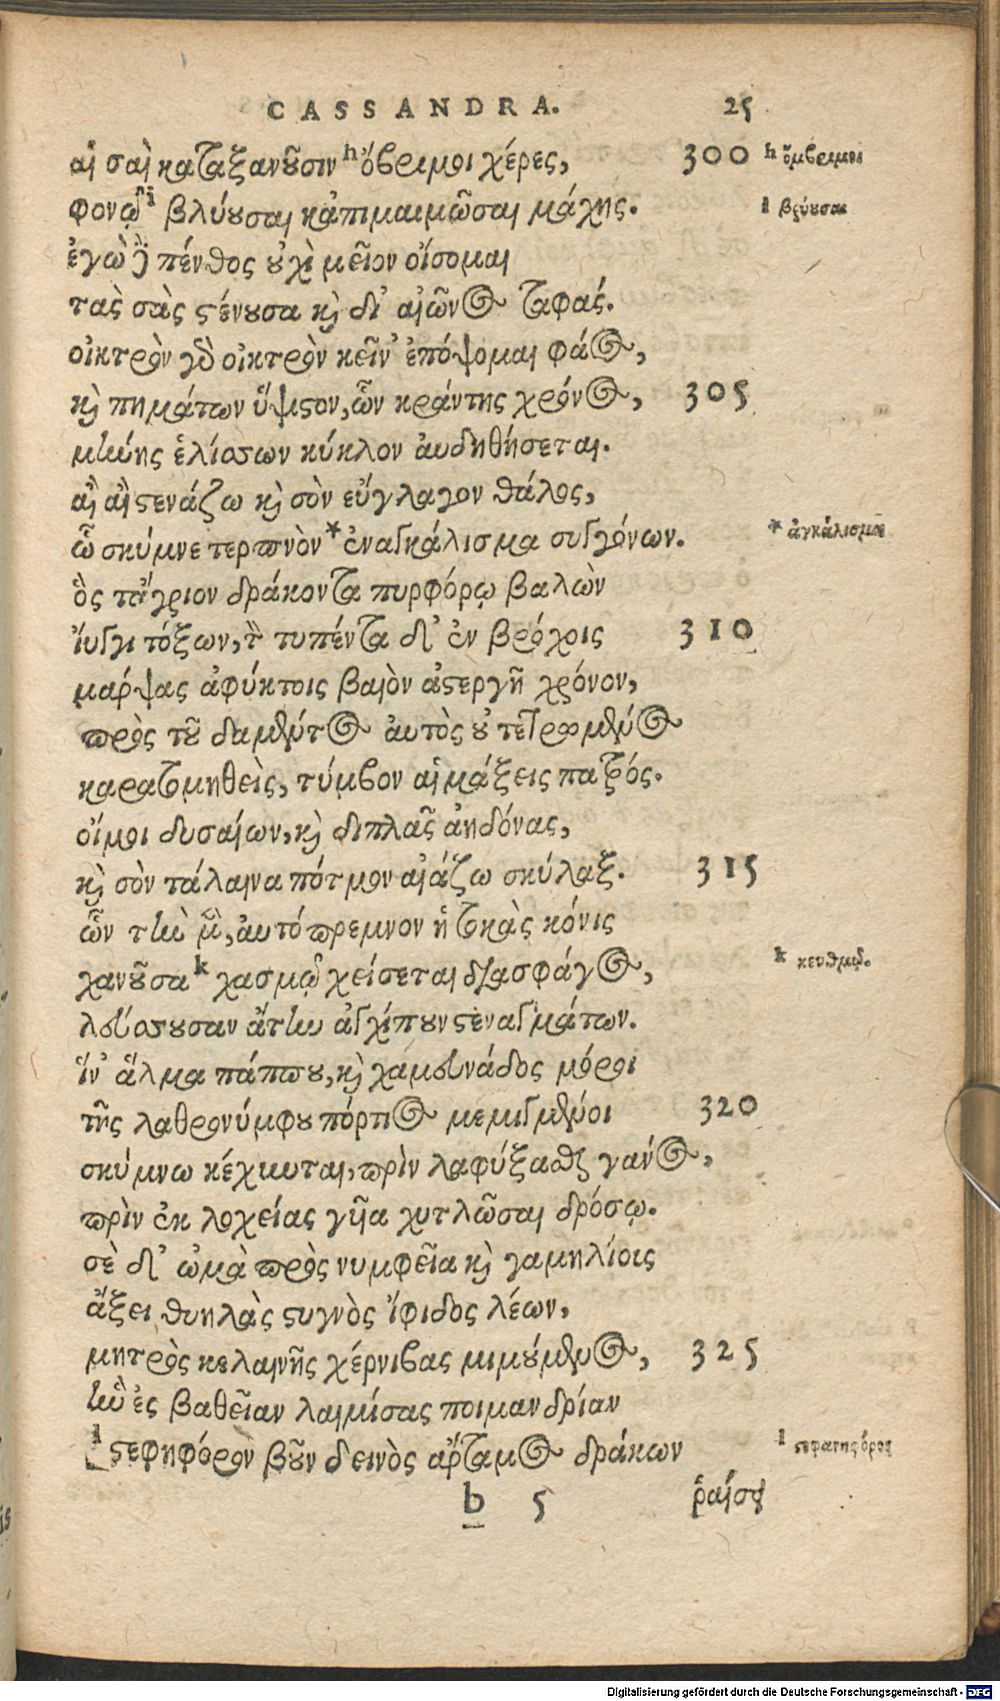 CASSANDRA. 25
αἱ σαὶ καταξανοῦσιν ʰ ὄβριμοι χέρες, 300 h ὄμβριμοι
φονῷ ⁱ βλύουσαι κἀπιμαιμῶσαι μάχης. i βρύουσαι
ἐγὼ δὲ πένθος οὐχὶ μεῖον οἴσομαι
τὰς σὰς στένουσα καὶ δι' αἰῶνος ταφάς.
οἰκτρὸν γὰρ οἰκτρὸν κεῖν' ἐπόψομαι φάος,
καὶ πημάτων ὕψιστον, ὧν κράντης χρόνος, 305
μήνης ἑλίσσων κύκλον αὐδηθήσεται.
αἲ αἲ στενάζω καὶ σὸν εὔγλαγον θάλος,
ὦ σκύμνε τερπνὸν * ἐναγκάλισμα συγγόνων. * ἀγκάλισμα
ὃς τἄγριον δράκοντα πυρφόρῳ βαλὼν
ἴυγγι τόξων, τὸν τυπέντα δ' ἐν βρόχοις 310
μάρψας ἀφύκτοις βαιὸν ἀστεργῆ χρόνον,
πρὸς τοῦ δαμέντος αὐτὸς οὐ τετρωμένος
καρατομηθεὶς, τύμβον αἱμάξεις πατρός.
οἴμοι δυσαίων, καὶ διπλᾶς ἀηδόνας,
καὶ σὸν τάλαινα πότμον αἰάζω σκύλαξ. 315
ὧν τὴν μὲν, αὐτόπρεμνον ἡ τοκὰς κόνις
χανοῦσα ᵏ χασμῷ χείσεται διασφάγος, k κευθμῷ.
λεύσσουσαν ἄτην ἀγχίπουν στεναγμάτων.
ἵν' ἄλμα πάππου, καὶ χαμευνάδος μόροι
τῆς λαθρονύμφου πόρτιος μεμιγμένοι 320
σκύμνω κέχυνται, πρὶν λαφύξασθαι γάνος,
πρὶν ἐκ λοχείας γυῖα χυτλῶσαι δρόσῳ.
σὲ δ' ὠμὰ πρὸς νυμφεῖα καὶ γαμηλίοις
ἄξει θυηλὰς στυγνὸς ἴφιδος λέων,
μητρὸς κελαινῆς χέρνιβας μιμούμενος, 325
ἣν ἐς βαθεῖαν λαιμίσας ποιμανδρίαν
ˡ στεφηφόρον βοῦν δεινὸς ἄρταμος δράκων l στεφανηφόρος
b 5 ῥαίσει